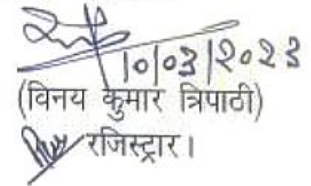 10/03/2023
(विनय कुमार त्रिपाठी)
रजिस्ट्रार।